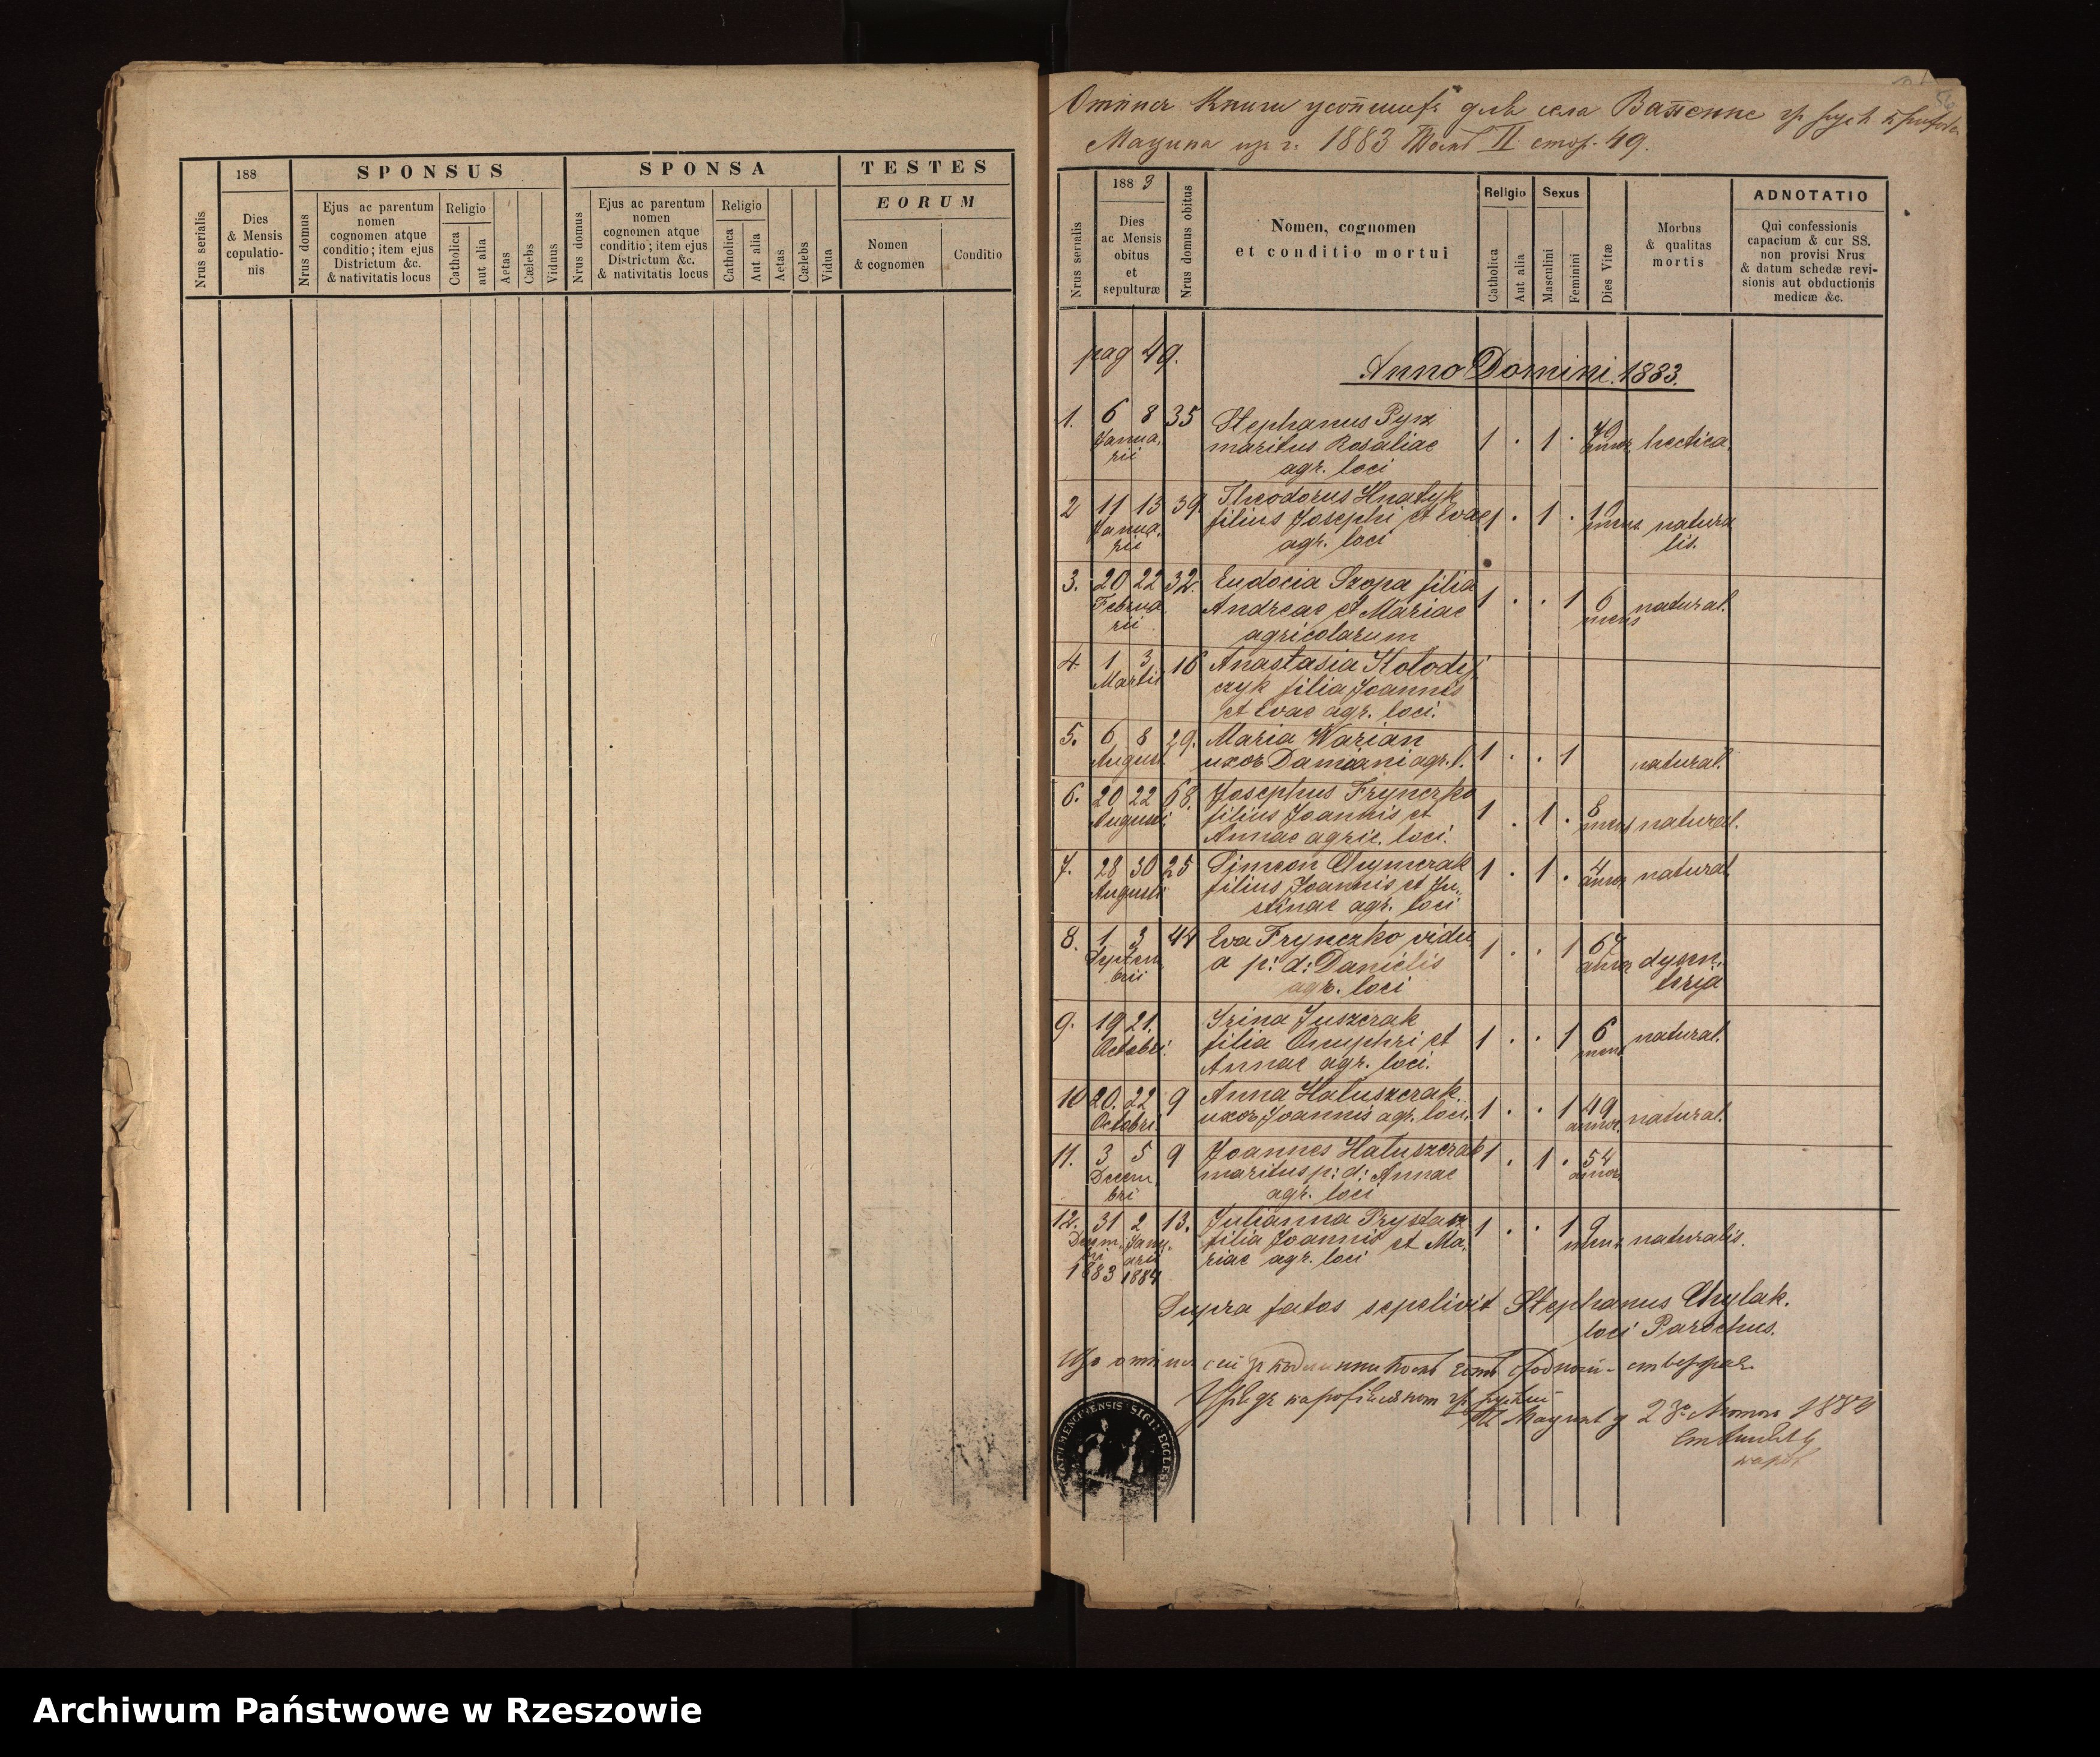 188
SPONSUS
SPONSA
TESTES
EORUM
Nrus serialis
Dies
& Mensis
copulatio-
nis
Nrus domus
Ejus ac parentum
nomen
cognomen atque
conditio; item ejus
Districtum &c.
& nativitatis locus
Religio
Catholica
aut alia
Aetas
Cælebs
Viduus
Nrus domus
Ejus ac parentum
nomen
cognomen atque
conditio; item ejus
Districtum &c.
& nativitatis locus
Religio
Catholica
Aut alia
Aetas
Cælebs
Vidua
Nomen
& cognomen
Conditio
села
1883 II стор. 49.
Nrus serialis
1883
Dies
ac Mensis
obitus
et
sepulturæ
Nrus domus obitus
Nomen, cognomen
et conditio mortui
Religio
Catholica
Aut alia
Sexus
Masculini
Feminini
Dies Vitæ
Morbus
& qualitas
mortis
ADNOTATIO
Qui confessionis
capacium & cur SS.
non provisi Nrus
& datum schedæ revi-
sionis aut obductionis
medicæ &c.
pag 49.
Anno Domini 1883.
1. 6 8 35 Stephanus Pyrz
Janua,
rii
maritus Rosaliae 1 · 1 · hectica.
agr. loci
2 11 13 39 Theodorus Hnatyk
Janua,
rii
filius Josephi et Evae 1 · 1 · natura
agr. loci lis.
3. 20 22 32. Eudocia Szopa filia
Februa
rii
Andreae et Mariae 1 · · 1 6 mens natural.
agricolarum
4. 1 3 16 Anastasia Kolodij
Martii
czyk filia Joannis
et Evae agr. loci.
5. 6 8 29. Maria Warian
August.
uxor Damiani agr. l. 1 · · 1 natural.
6. 20 22 68. Josephus Frynczko
Augusti
filius Joannis et 1 · 1 · 8 mens natural.
Annae agric. loci.
7. 28 30 25 Simeon Chymczak
Augusti
filius Joannis et Ju, 1 · 1 · 4 annor natural.
stinae agr. loci
8. 1 3 44 Eva Frynczko vidu
Septem
brii
a p: d: Danielis 1 · · 1 67 annor dysen,
agr. loci terija
9. 19 21. Irina Juszczak
Octobri.
filia Onuphri et 1 · · 1 6 mens natural.
Annae agr. loci.
10 20. 22 9 Anna Hatuszczak.
Octobri
uxor Joannis agr. loci. 1 · · 1 49 annor. natural.
11. 3 5 9 Joannes Hatuszczak 1 · 1 · 54 annor
Decem
bri
maritus p: d: Annae
agr. loci
12. 31 2 13. Julianna Prystasz
Decem, Janu.
bri arii
1883 1884
filia Joannis et Ma, 1 · · 1 9 mens naturalis.
riae agr. loci
Supra fatos sepelivit Stephanus Chylak.
loci Parochus.
1884
SIGIL ECCLES
Archiwum Państwowe w Rzeszowie